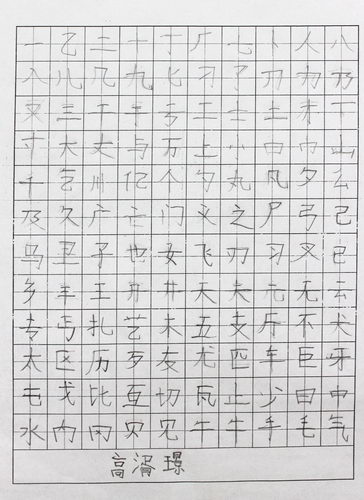 一乙二十丁厂七卜人八
入儿几九匕刁了刀力乃
又三干于亏工土士才下
寸大丈与万上小口巾山
千乞川亿个勺丸凡夕么
及久广亡门义之尸弓己
乌卫子也女飞刃习叉已
乡丰王开井天夫元无云
专丐扎艺木五支厅不犬
太区历歹友尤匹车巨牙
屯戈比互切瓦止少曰中
水内冈贝见午牛手毛气
高